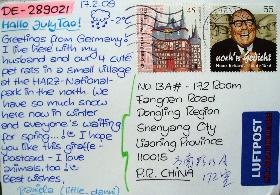 DE-289021
17.2.09
Hallo JulyTao!
-2°C
Greetings from Germany!
I live here with my
husband and our 4 cute
pet rats in a small village
at the HARZ-National-
park in the north. We
have so much snow
here now in winter
and everone's waiting
for spring... I hope
you like this giraffe-
postcard - I love
animals, too!
Best wishes,
(little-dani)
45
55
noch'n Gedicht
Heinz Erhardt
No 13A# - 172 Room
Fangnan Road
Dongling Region
Shenyang City
Liaoning Province
110015
P.R. CHINA
172室
LUFTPOST